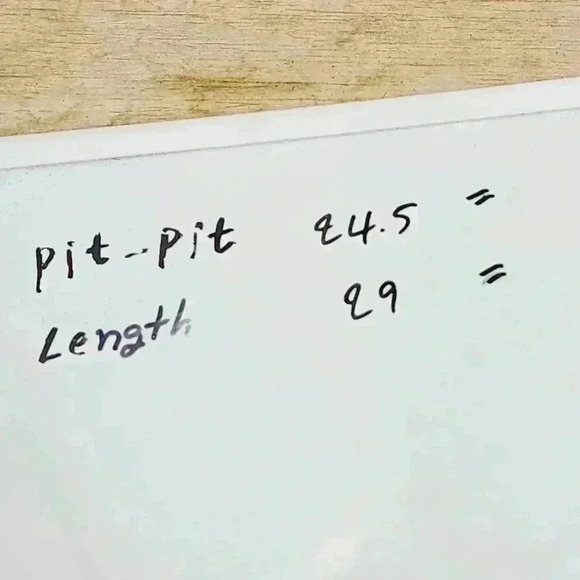 pit-pit 24.5 "
Length 29 "